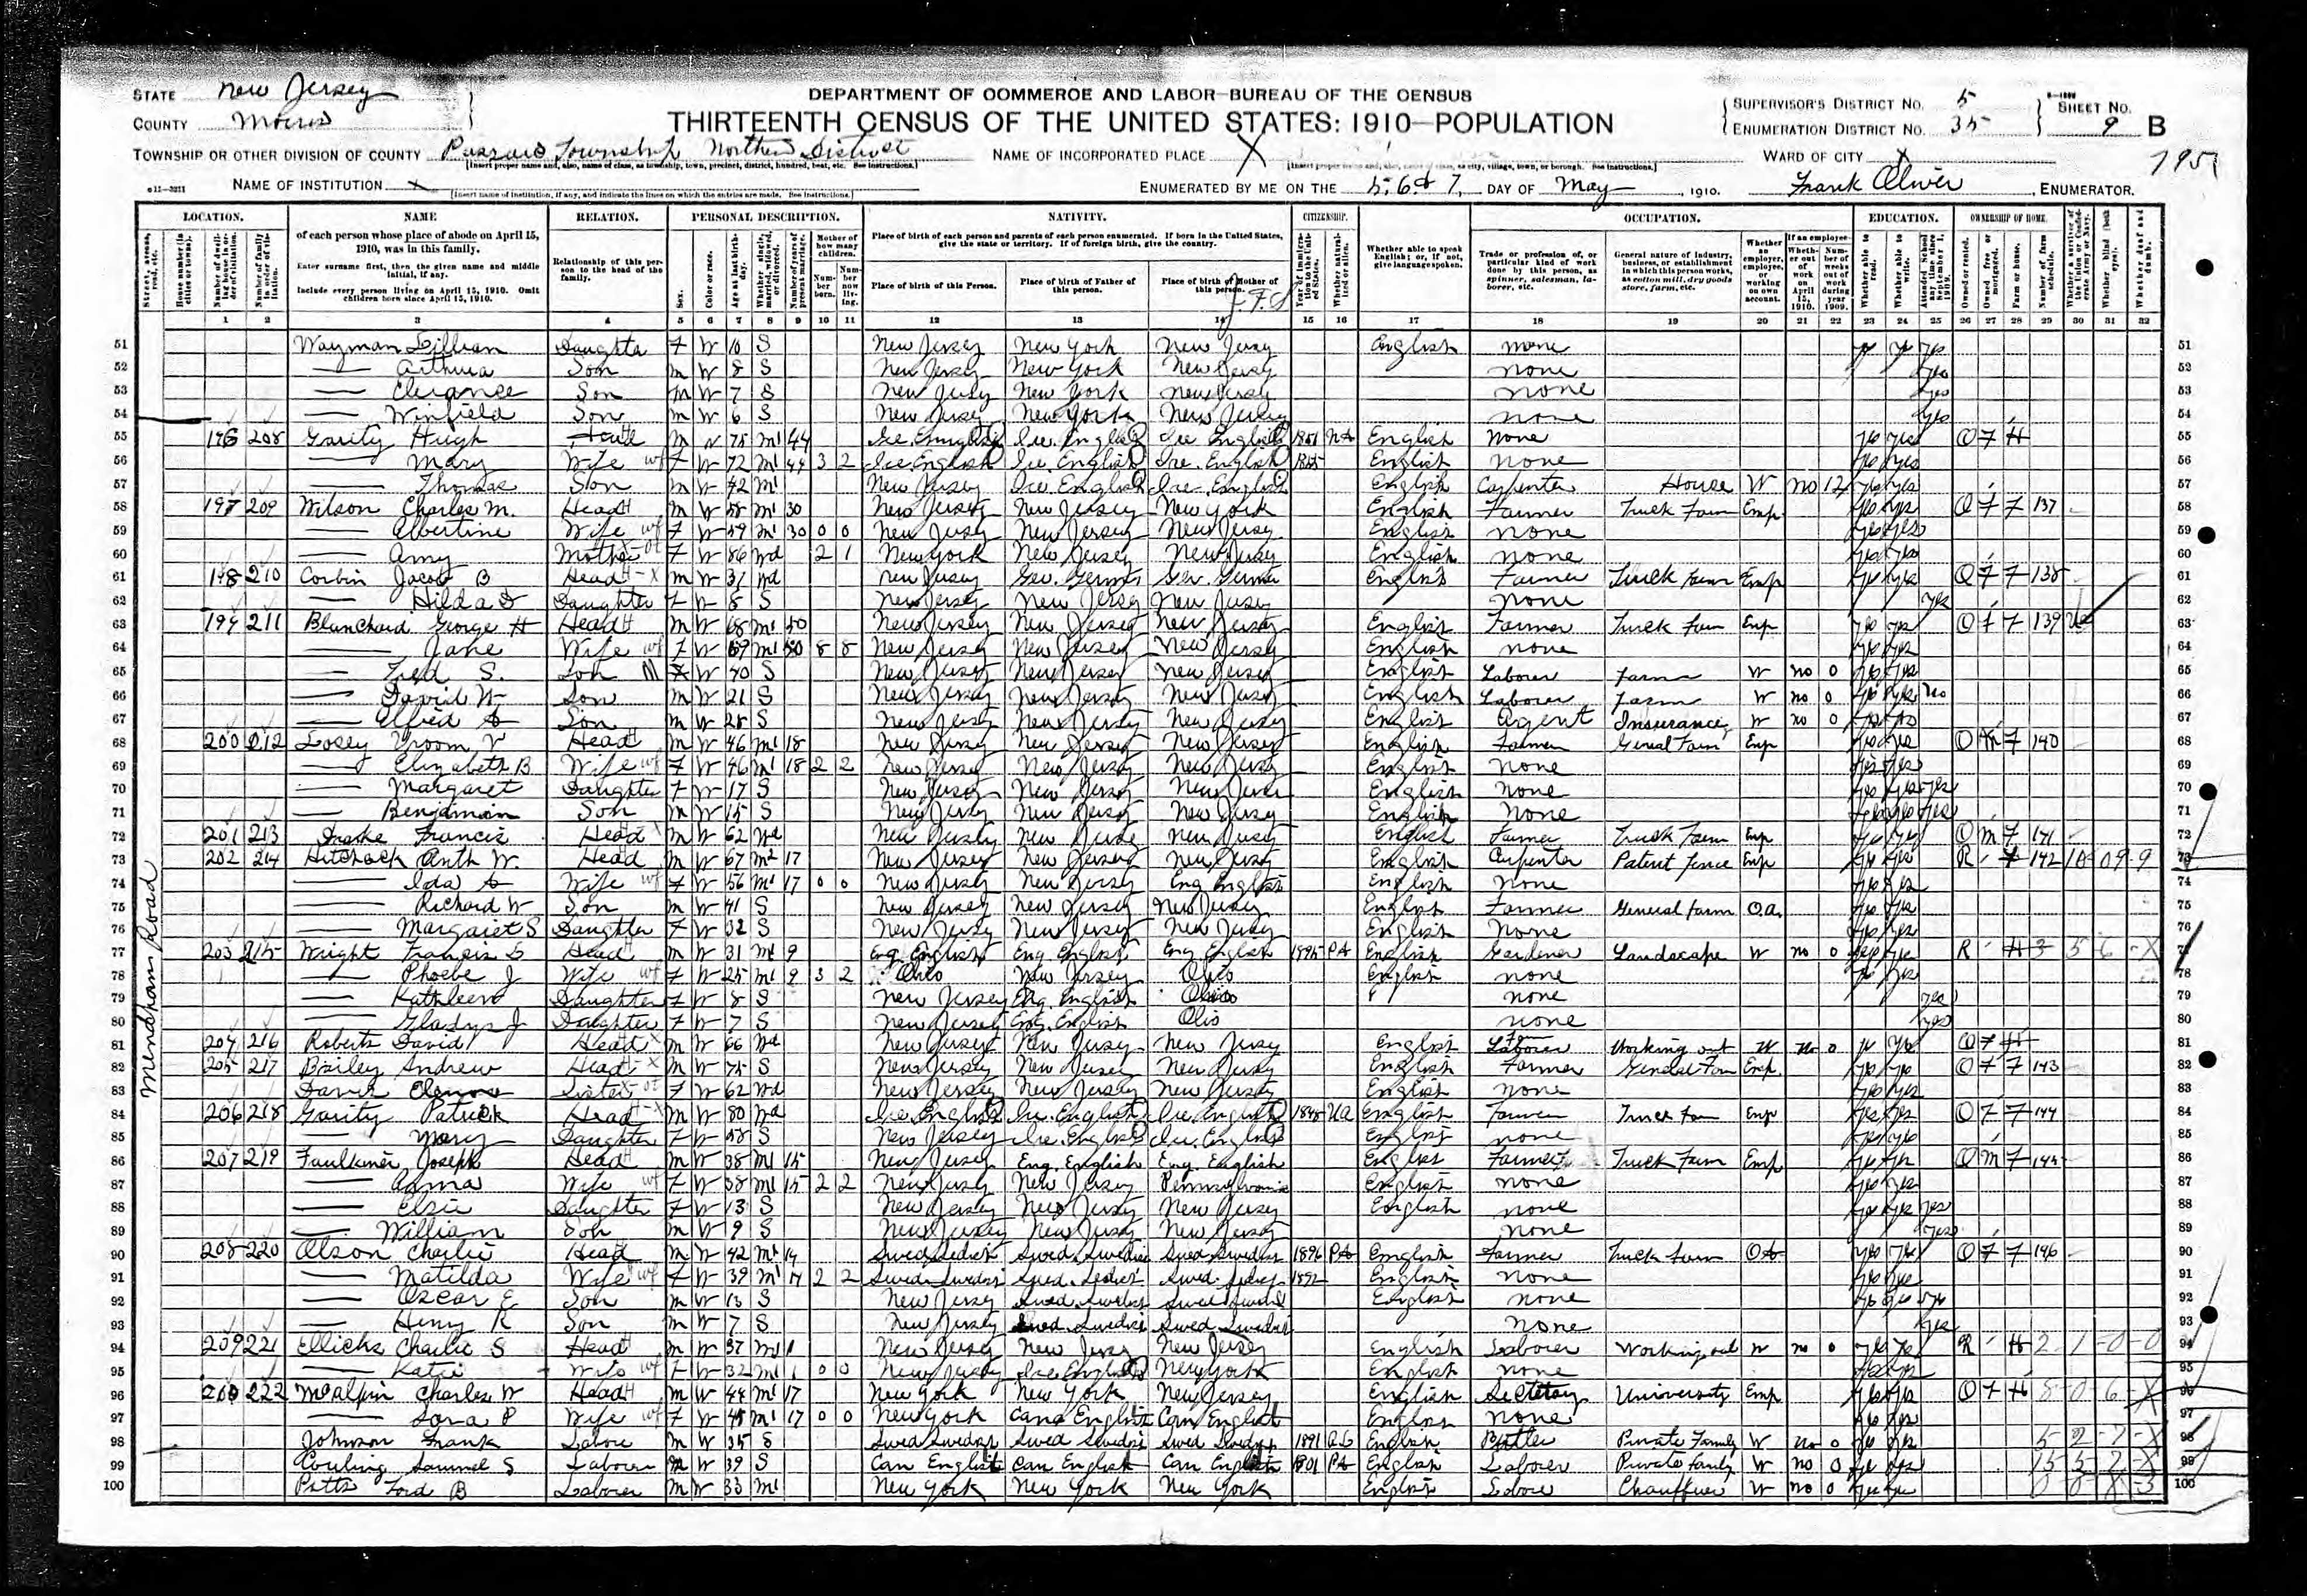 STATE New Jersey
COUNTY Morris
DEPARTMENT OF COMMERCE AND LABOR—BUREAU OF THE CENSUS
THIRTEENTH CENSUS OF THE UNITED STATES: 1910—POPULATION
SUPERVISOR'S DISTRICT No. 5
ENUMERATION DISTRICT No. 35
SHEET No. 9 B
TOWNSHIP OR OTHER DIVISION OF COUNTY Passaic Township Northern District
NAME OF INCORPORATED PLACE X
WARD OF CITY X
NAME OF INSTITUTION X
ENUMERATED BY ME ON THE 5, 6 & 7, DAY OF May, 1910. Frank Oliver, ENUMERATOR.
LOCATION. NAME RELATION. PERSONAL DESCRIPTION. NATIVITY. CITIZENSHIP. OCCUPATION. EDUCATION. OWNERSHIP OF HOME.
of each person whose place of abode on April 15, 1910, was in this family.
Enter surname first, then the given name and middle initial, if any.
Include every person living on April 15, 1910. Omit children born since April 15, 1910.
Relationship of this person to the head of the family.
Place of birth of each person and parents of each person enumerated. If born in the United States, give the state or territory. If of foreign birth, give the country.
Place of birth of this Person. Place of birth of Father of this person. Place of birth of Mother of this person.
Whether able to speak English; or, if not, give language spoken.
Trade or profession of, or particular kind of work done by this person, as spinner, salesman, laborer, etc.
General nature of industry, business, or establishment in which this person works, as cotton mill, dry goods store, farm, etc.
1 2 3 4 5 6 7 8 9 10 11 12 13 14 15 16 17 18 19 20 21 22 23 24 25 26 27 28 29 30 31 32
Mendham Road
51 Wayman Lillian Daughter F W 10 S New Jersey New York New Jersey English none
52 — Arthur Son M W 8 S New Jersey New York New Jersey none yes
53 — Clerance Son M W 7 S New Jersey New York New Jersey none yes
54 — Winfield Son M W 6 S New Jersey New York New Jersey none yes
55 196 208 Garity Hugh Head M W 75 M1 44 Ire. English Ire. English Ire English 1851 Na English none yes yes O F H
56 — Mary Wife F W 72 M1 44 3 2 Ire. English Ire. English Ire. English English none yes yes
57 — Thomas Son M W 42 M1 New Jersey Ire. English Ire. English English Carpenter House W no 12 yes yes
58 197 209 Wilson Charles M. Head M W 58 M1 30 New Jersey New Jersey New York English Farmer Truck Farm Emp yes yes O F F 137
59 — Albertine Wife F W 59 M1 30 0 0 New Jersey New Jersey New Jersey English none yes yes
60 — Amy Mother F W 86 Wd 2 1 New York New Jersey New Jersey English none yes yes
61 198 210 Corbin Jacob B Head M W 31 Wd New Jersey Ger. German Ger. German English Farmer Truck Farm Emp yes yes O F F 138
62 — Hilda D Daughter F W 8 S New Jersey New Jersey New Jersey none yes
63 199 211 Blanchard George H Head M W 68 M1 50 New Jersey New Jersey New Jersey English Farmer Truck Farm Emp yes yes O F F 139
64 — Jane Wife F W 69 M1 50 8 8 New Jersey New Jersey New Jersey English none yes yes
65 — Fred S. Son M W 40 S New Jersey New Jersey New Jersey English Laborer Farm W no 0 yes yes
66 — David W Son M W 21 S New Jersey New Jersey New Jersey English Laborer Farm W no 0 yes yes no
67 — Alfred Son M W 28 S New Jersey New Jersey New Jersey English Agent Insurance W no 0 yes yes
68 200 212 Losey Vroom V Head M W 46 M1 18 New Jersey New Jersey New Jersey English Farmer General Farm Emp yes yes O M F 140
69 — Elizabeth B Wife F W 46 M1 18 2 2 New Jersey New Jersey New Jersey English none yes yes
70 — Margaret Daughter F W 17 S New Jersey New Jersey New Jersey English none yes yes yes
71 — Benjamin Son M W 15 S New Jersey New Jersey New Jersey English none yes yes yes
72 201 213 Drake Francis Head M W 62 Wd New Jersey New Jersey New Jersey English Farmer Truck Farm Emp yes yes O M F 141
73 202 214 Hitchock Anth W. Head M W 67 M2 17 New Jersey New Jersey New Jersey English Carpenter Patent Fence Emp yes yes R F 142
74 — Ida Wife F W 56 M1 17 0 0 New Jersey New Jersey Eng English English none yes yes
75 — Richard W Son M W 41 S New Jersey New Jersey New Jersey English Farmer General Farm O.a. yes yes
76 — Margaret S Daughter F W 32 S New Jersey New Jersey New Jersey English none yes yes
77 203 215 Wright Francis Head M W 31 M1 9 Eng. English Eng English Eng English 1895 Pa English Gardener Landscape W no 0 yes yes R H
78 — Phoebe J Wife F W 25 M1 9 3 2 Ohio New Jersey Ohio English none yes yes
79 — Kathleen Daughter F W 8 S New Jersey Eng. English Ohio none yes
80 — Gladys J Daughter F W 7 S New Jersey Eng. English Ohio none yes
81 204 216 Roberts David Head M W 66 Wd New Jersey New Jersey New Jersey English Laborer Working out W no 0 yes yes O F H
82 205 217 Bailey Andrew Head M W 75 S New Jersey New Jersey New Jersey English Farmer General Farm Emp. yes yes O F F 143
83 Sister F W 62 Wd New Jersey New Jersey New Jersey English none yes yes
84 206 218 Garity Patrick Head M W 80 Wd Ire. English Ire. English Ire. English 1848 Na English Farmer Truck Farm Emp yes yes O F F 144
85 — Mary Daughter F W 48 S New Jersey Ire. English Ire. English English none yes yes
86 207 219 Faulkner Joseph Head M W 38 M1 15 New Jersey Eng. English Eng. English English Farmer Truck Farm Emp yes yes O M F 145
87 — Anna Wife F W 38 M1 15 2 2 New Jersey New Jersey Pennsylvania English none yes yes
88 — Elsie Daughter F W 13 S New Jersey New Jersey New Jersey English none yes yes yes
89 — William Son M W 9 S New Jersey New Jersey New Jersey none yes
90 208 220 Olson Charlie Head M W 42 M1 14 Swed Swedish Swed. Swedish Swed Swedish 1896 Pa English Farmer Truck Farm yes yes O F F 146
91 — Matilda Wife F W 39 M1 14 2 2 Swed. Swedish Swed. Swedish Swed. Swedish 1892 English none yes yes
92 — Oscar E Son M W 13 S New Jersey Swed. Swedish Swed Swedish English none yes yes yes
93 — Henry R Son M W 7 S New Jersey Swed. Swedish Swed. Swedish none yes
94 209 221 Ellicks Charlie S Head M W 37 M1 1 New Jersey New Jersey New Jersey English Laborer Working out W no 0 yes yes R H
95 — Katie Wife F W 32 M1 1 0 0 New Jersey Ire English New York English none yes yes
96 222 McAlpin Charles W Head M W 44 M1 17 New York New York New Jersey English University Emp yes yes O F H
97 — Sara P Wife F W 48 M1 17 0 0 New York Cana English Can English English none yes yes
98 Johnson Frank M W 35 S Swed Swedish Swed Swedish Swed Swedish 1891 English Butler Private Family W no 0 yes yes
99 Samuel S Laborer M W 39 S Can English Can English Can English Pa English Laborer Private Family W no 0 yes yes
100 Potts Ford B Laborer M W 33 M1 New York New York New York English Chauffuer W no 0 yes yes